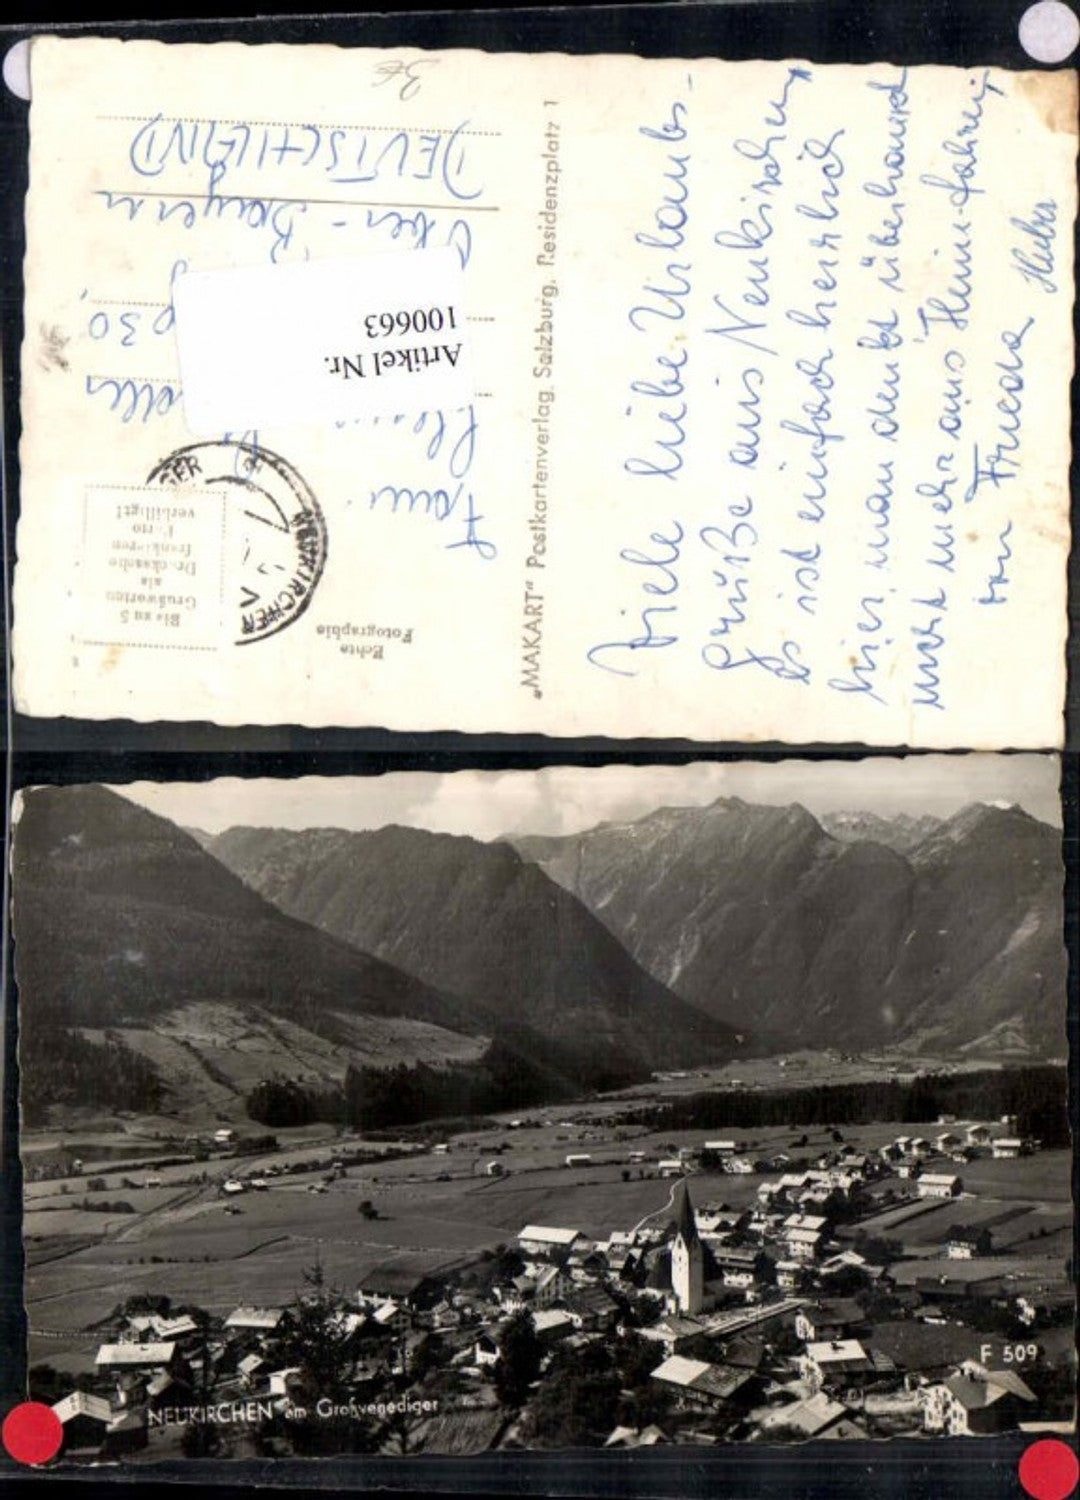 Viele liebe Urlaubs-
Grüße aus Neukirchen
Es ist einfach herrlich
hier, man denkt überhaupt
nicht mehr ans Heim-fahren
von Frieda
"MAKART" Postkartenverlag, Salzburg, Residenzplatz 1
Echte
Fotographie
Bis zu 5
Grußworten
als
Drucksache
frankieren
Porto
verbilligt!
NEUKIRCHEN
GER
Artikel Nr.
100663
30,
Ober-Bayern
DEUTSCHLAND
3€
NEUKIRCHEN am Großvenediger
F 509